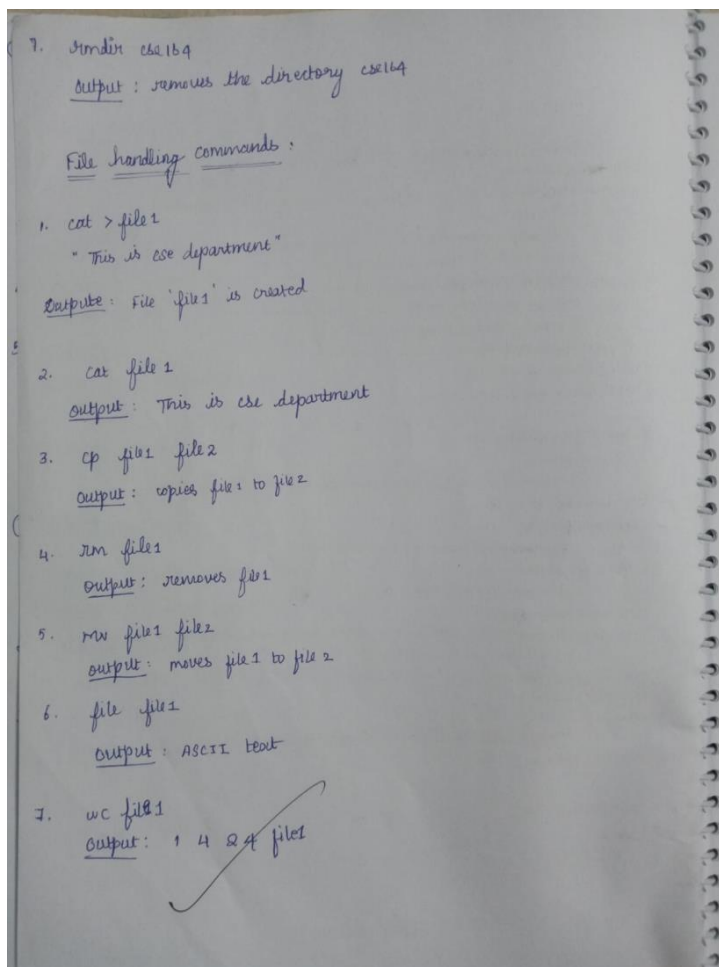 7. rmdir cse164
Output : removes the directory cse164
File handling commands :
1. cat > file1
" This is cse department"
Outpute : File 'file1' is created
2. cat file 1
output : This is cse department
3. cp file1 file2
output : copies file1 to file2
4. rm file1
output : removes file1
5. mv file1 file2
output : moves file1 to file 2
6. file file1
output : ASCII text
7. wc file1
output : 1 4 24 file1